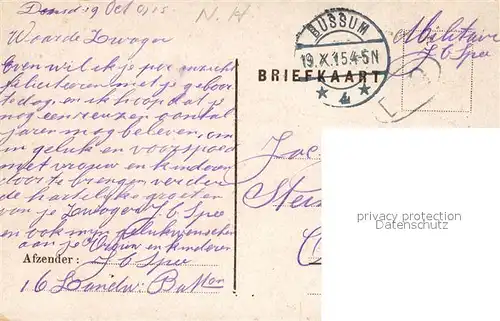 19 Oct 1915
N. H
Waarde Zwager
Even wil ik je per ansicht
feliciteeren met je geboorte
dag en ik hoop dat je
nog een reuzen aantal
jaren mag beleven, om
in geluk en voorspoed
met vrouw en kinderen
door te brengen verder
de hartelijke groeten
van je Zwager J. C. Spee
en ook mijn gelukwenschen
aan je Vrouw en kinderen
Afzender: J C Spee
16 Landw: Batton
BUSSUM
19.X.15.4-5N
4
BRIEFKAART
Militair
J C Spee
privacy protection
Datenschutz